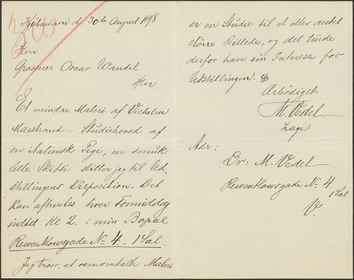 København d. 30te August 1898
Herr
Grosserer Oscar Wandel
Herr
Et mindre Maleri af Vilhelm
Marstrand Studiehoved af
en italiensk Pige, en smuk
lille Skitse stiller jeg til Ud-
stillingens Disposition. Det
kan afhentes hver Formiddag
indtil Kl 2. i min Bopæl
Reventlowsgade No 4. 1 Sal.
Jeg tror, at ovenomtalte Maleri
er en Studie til et eller andet
større Billede, og det turde
derfor have sin Interesse for
Udstillingen.
Ærbødigst
M. Vedel
Læge
Adr:
Dr. M. Vedel
Reventlowsgade No. 4